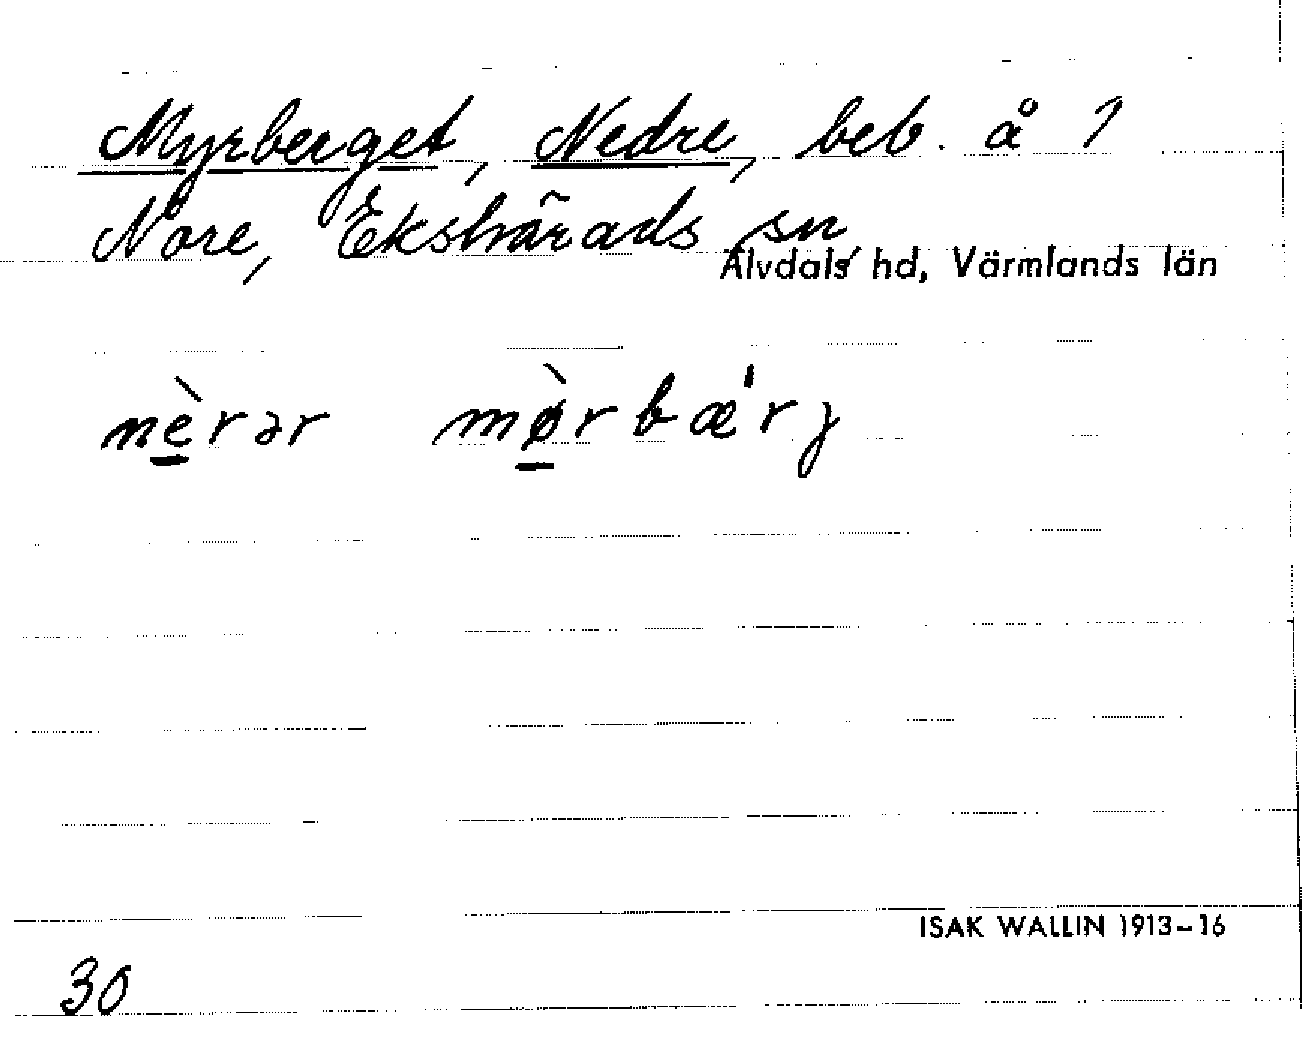 Myrberget, Nedre, beb. å 1
Nore, Ekshärads sn
Älvdals hd, Värmlands län
nèrər mørbæ'rj
ISAK WALLIN 1913-16
30